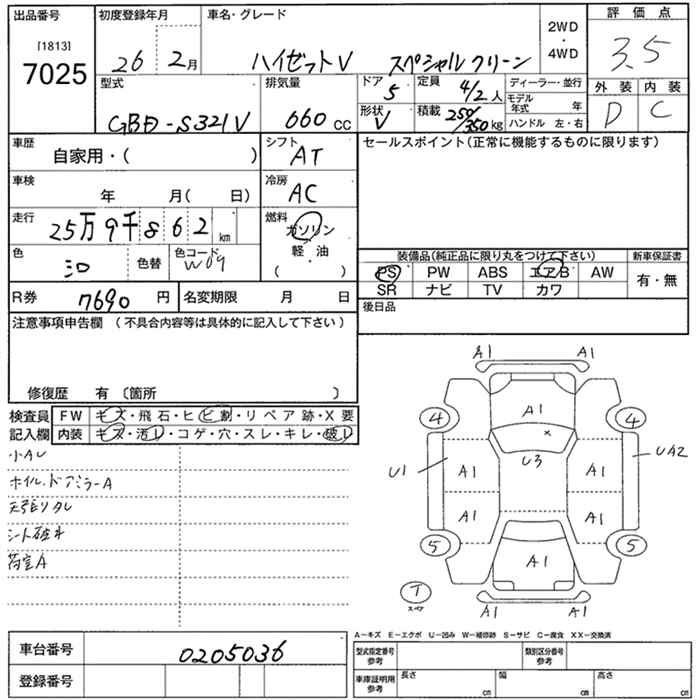 出品番号 初度登録年月 車名・グレード 評価点
[1813]
7025
26 2月 ハイゼットV スペシャルクリーン
2WD
・
4WD
3.5
外装 内装
D C
型式 排気量 ドア 定員 ディーラー・並行
GBD-S321V 660cc 5 4/2人
モデル年式 年
形状 積載 ハンドル 左・右
V 250/350kg
車歴 シフト セールスポイント(正常に機能するものに限ります)
自家用・( ) AT
車検 冷房
年 月( 日) AC
走行 燃料
25万9千862km ガソリン
軽・油
( )
色 色替 色コード
シロ W09
装備品(純正品に限り丸をつけて下さい) 新車保証書
PS PW ABS エアB AW 有・無
SR ナビ TV カワ
R券 7690円 名変期限 月 日
後日品
注意事項申告欄 (不具合内容等は具体的に記入して下さい)
修復歴 有 〔箇所 〕
検査員 FW キズ・飛石・ヒビ割・リペア跡・X要
記入欄 内装 キズ・汚レ・コゲ・穴・スレ・キレ・破レ
小AU
ホイル.ドアミラーA
天張りタレ
シート破れ
荷室A
A1 A1
4 A1 4
U1 A1 U3 A1 UA2
A1 A1
5 A1 5
T
スペア
A1 A1
A-キズ E-エクボ U-凹み W-補修跡 S-サビ C-腐食 XX-交換済
車台番号 0205036
型式指定番号 参考 類別区分番号 参考
登録番号
車庫証明用 参考 長さ cm 幅 cm 高さ cm